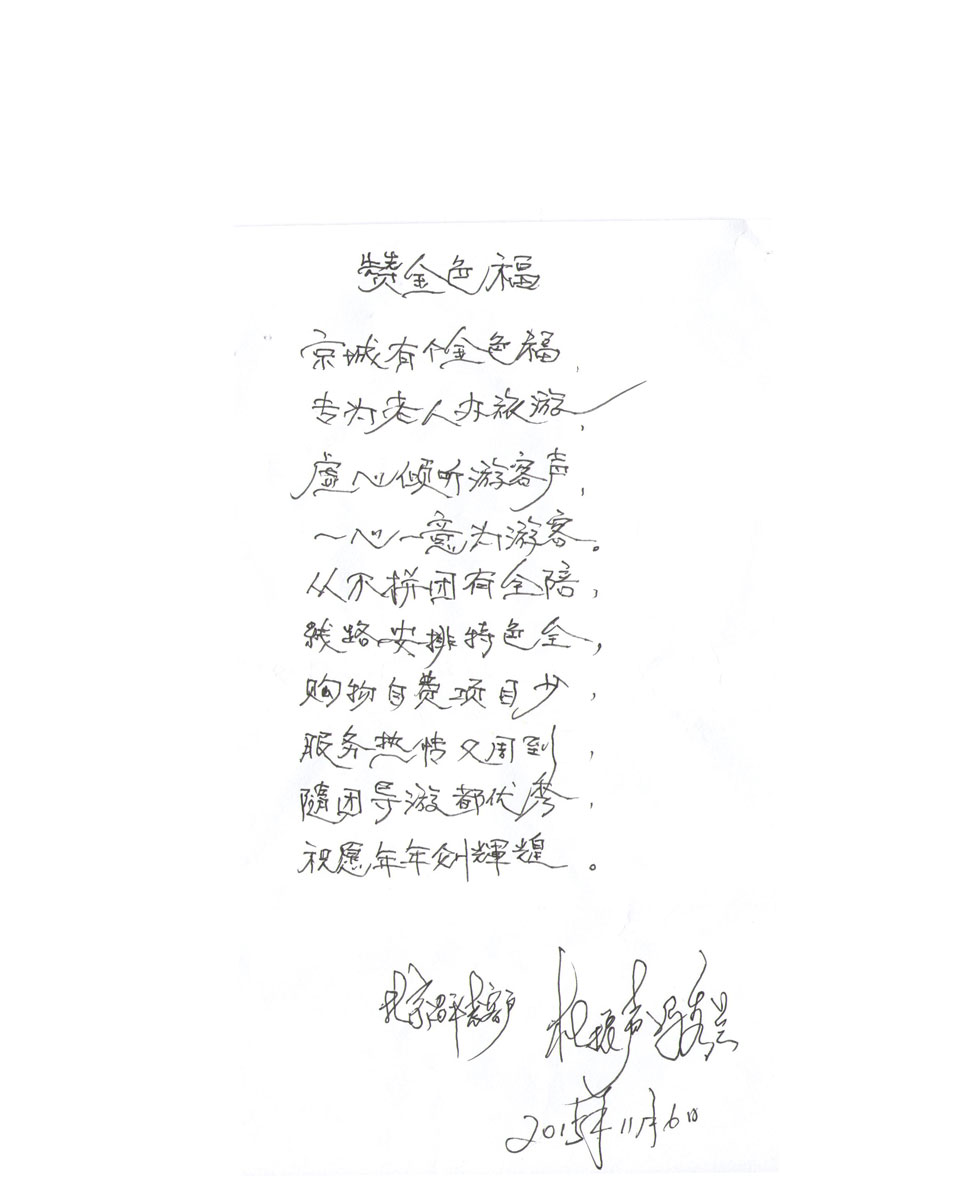 赞金色福
京城有个金色福,
专为老人办旅游,
虚心倾听游客声,
一心一意为游客。
从不拼团有全陪,
线路安排特色全,
购物自费项目少,
服务热情又周到,
随团导游都优秀,
祝愿年年创輝煌。
北京 声
2015年11月6日